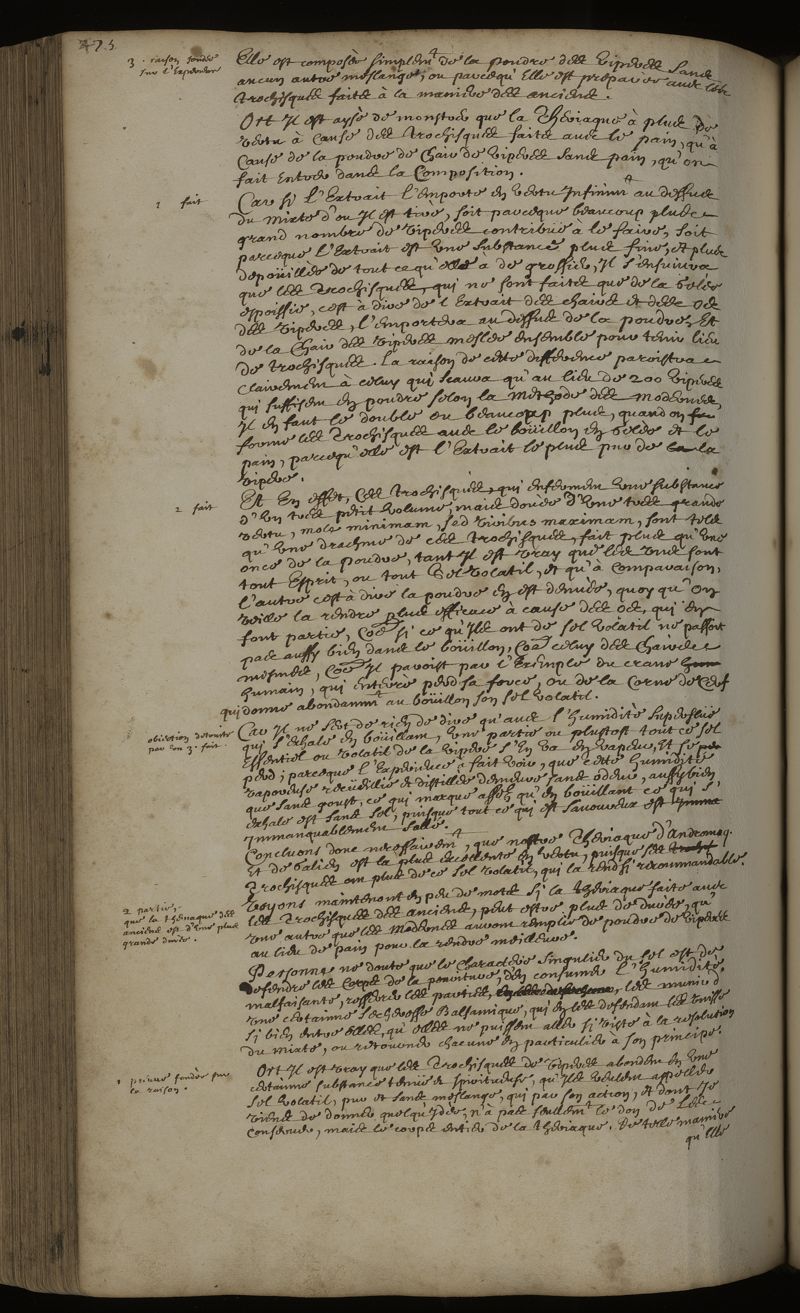 475.
3. raison fondée
sur l'Experience
Elle est composée simplem.t de la poudre des Viperes sans
aucun autre meslange, ou parcequ'Elle est preparée avec les
Trochisques faites à la maniere des anciens.
Ort Il est aysé de monstrer que la Theriaque à plus de
vertu à cause des Trochisques faites avec le pain, qu'à
cause de la poudre de Chair de Viperes sans pain, qu'on
fait entrer dans la Composition.
1 fait
Car si L'Extrait L'emporte en vertu Infinim.t au dessus
du Mixte d'ou Il est tiré, soit parceque beaucoup plus
grand nombre de Viperes contribue à le faire, soit
parceque l'Extrait est Une substance plus fine, et plus
depoüillée de tout ce qu'elle à de grossier, Il s'ensuivra
que les Trochisques, qui ne sont faites que de la Gelée
espoissie, c'est à dire de l'Extrait des chairs et des os
des Viperes, l'emportera au dessus de la poudre, Et
de la Chair des Viperes meslées ensemble pour tenir lieu
de Trochisques. La raison de cette difference paroistra
clairement à celuy qui scaura qu'au lieu de 200 Viperes
qui suffisent en poudre selon la Methode des Modernes,
Il en faut le double ou beaucoup plus, quand on
forme les Trochisques avec le boüillon en Gelée et le
pain, parcequ'elle est l'Extrait le plus pur de la
Vipere.
2 fait
Et En effet, Ces Trochisques, qui enferment Une substance
d'Un tres petit volume, mais douée d'Une tres grande
vertu, mole minimam, sed viribus maximam, sont tels
qu'Une drachme de ces Trochisques, fait plus qu'Une
once de la poudre, tant Il est vray que les Uns sont
tout Esprit, ou tout Sel volatil, et qu'à comparaison,
l'autre c'est à dire la poudre en est denuée, quoy qu'On
veille la rendre plus efficace à cause des os, qui en
font partie, Coe si ce qu'Ils ont de sel volatil ne passoit
pas aussy bien dans le boüillon, Coe celuy des Chairs
mesmes, Coe Il paroist par l'Exemple du crane
humain, qui entiere perd sa force, ou de la Corne de Cerf
qui donne abondamm.t au boüillon son sel volatil.
obiection detruite
par un 3. fait.
Car Il ne sert de rien de dire qu'avec l'humidité superflue
qui s'exhale en boüillant, Une partie ou plustost tout ce sel
Essentiel ou volatil de la Vipere s'En va en vapeur, Et se
perd; parceque l'Experience a fait voir, que cette humidité
vaporeuse recüeillie et distillée demeure sans odeur, aussy bien
que sans goust, ce qui marque assez qu'En boüillant ce qui s'
exhale est sans sel, puisque tout ce qui est savoureux est
Immanquablement salé.
Concluons donc necessairem.t, que nostre Theriaque d'Andromaq.
Et de Galien est la plus excellente en vertu, puisque les
Trochisques ont plus de ce sel volatil, qui la rend si recommandable.
2 partie,
que la Theriaque des
anciens est d'Une plus
grande durée.
Voyons maintenant en peu de mots si la theriaque faite avec
les Trochisques des anciens, peut estre plus de durée, qu'
Une autre que les Modernes auront remplie de poudre de Viperes
au lieu de pain pour la rendre meilleure.
Personne ne doute que le Charactere singulier du sel est de
defendre les Corps de la pourriture, d'en consumer l'humidité
malfaisante, resserrer les parties, les munir d'
Une certainne secheresse Balsamique, qui en les defendant les Unisse
si bien entre Elles, qu'Elles ne puissent aller si viste à la resolution
du Mixte, ou retourner chacune en particulier à son principe.
1 preuve fondée sur
la raison.
Ort Il est vray que les Trochisques de Viperes abondent en Une
certainne substance tenüe et spiritueuse, qu'Ils veulent appeller
sel volatil, pur et sans meslange, qui par son action, et dont Je
viens de donner quelqu'Idée, n'a pas seullem.t le don de Les
Conserver, mais le corps entier de la theriaque. De telle maniere
qu'Elle